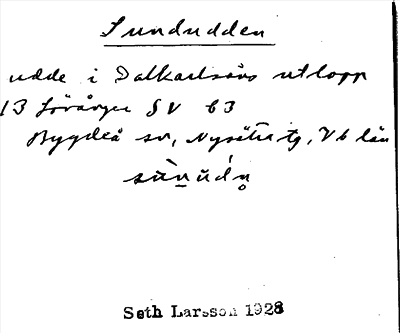 Sundudden
udde i Dalkarlsåns utlopp
13 Lövånger SV b3
Bygdeå sn, Nysätra tg, Vb län
sùnúdn̥
Seth Larsson 1928